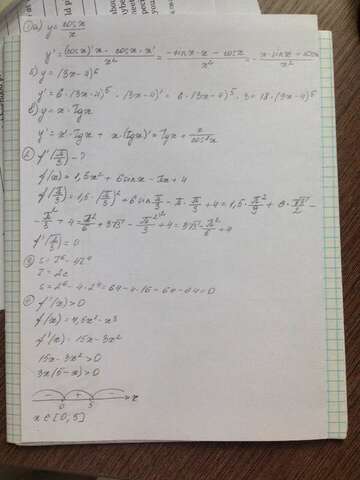 1) а) y = cosx/x
y' = (cosx)'·x - cosx·x'/x² = -sinx·x - cosx/x² = -x·sinx - cosx/x²
б) y = (3x-4)⁶
y' = 6·(3x-4)⁵·(3x-4)' = 6·(3x-4)⁵·3 = 18·(3x-4)⁵
в) y = x·tgx
y' = x'·tgx + x·(tgx)' = tgx + x/cos²x
2) f'(π/3) - ?
f(x) = 1,5x² + 6sinx - πx + 4
f(π/3) = 1,5·(π/3)² + 6sinπ/3 - π·π/3 + 4 = 1,5·π²/9 + 6·√3/2 -
- π²/3 + 4 = π²/6 + 3√3 - π²/3 + 4 = 3√3 - π²/6 + 4
f'(π/3) = 0
3) S = t⁶ - 4t⁴
t = 2c
S = 2⁶ - 4·2⁴ = 64 - 4·16 = 64 - 64 = 0
f'(x) > 0
f(x) = 7,5x² - x³
f'(x) = 15x - 3x²
15x - 3x² > 0
3x(5-x) > 0
- + -
0 5 x
x ∈ [0; 5]